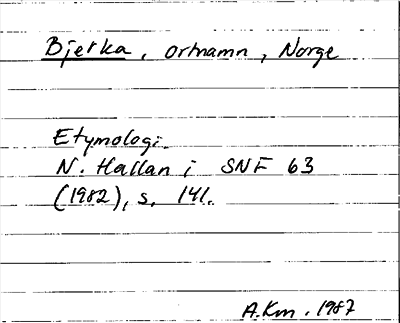 Bjerka, ortnamn, Norge
Etymologi.
N. Hallan i SNF 63
(1982), s. 141.
A.Km. 1987